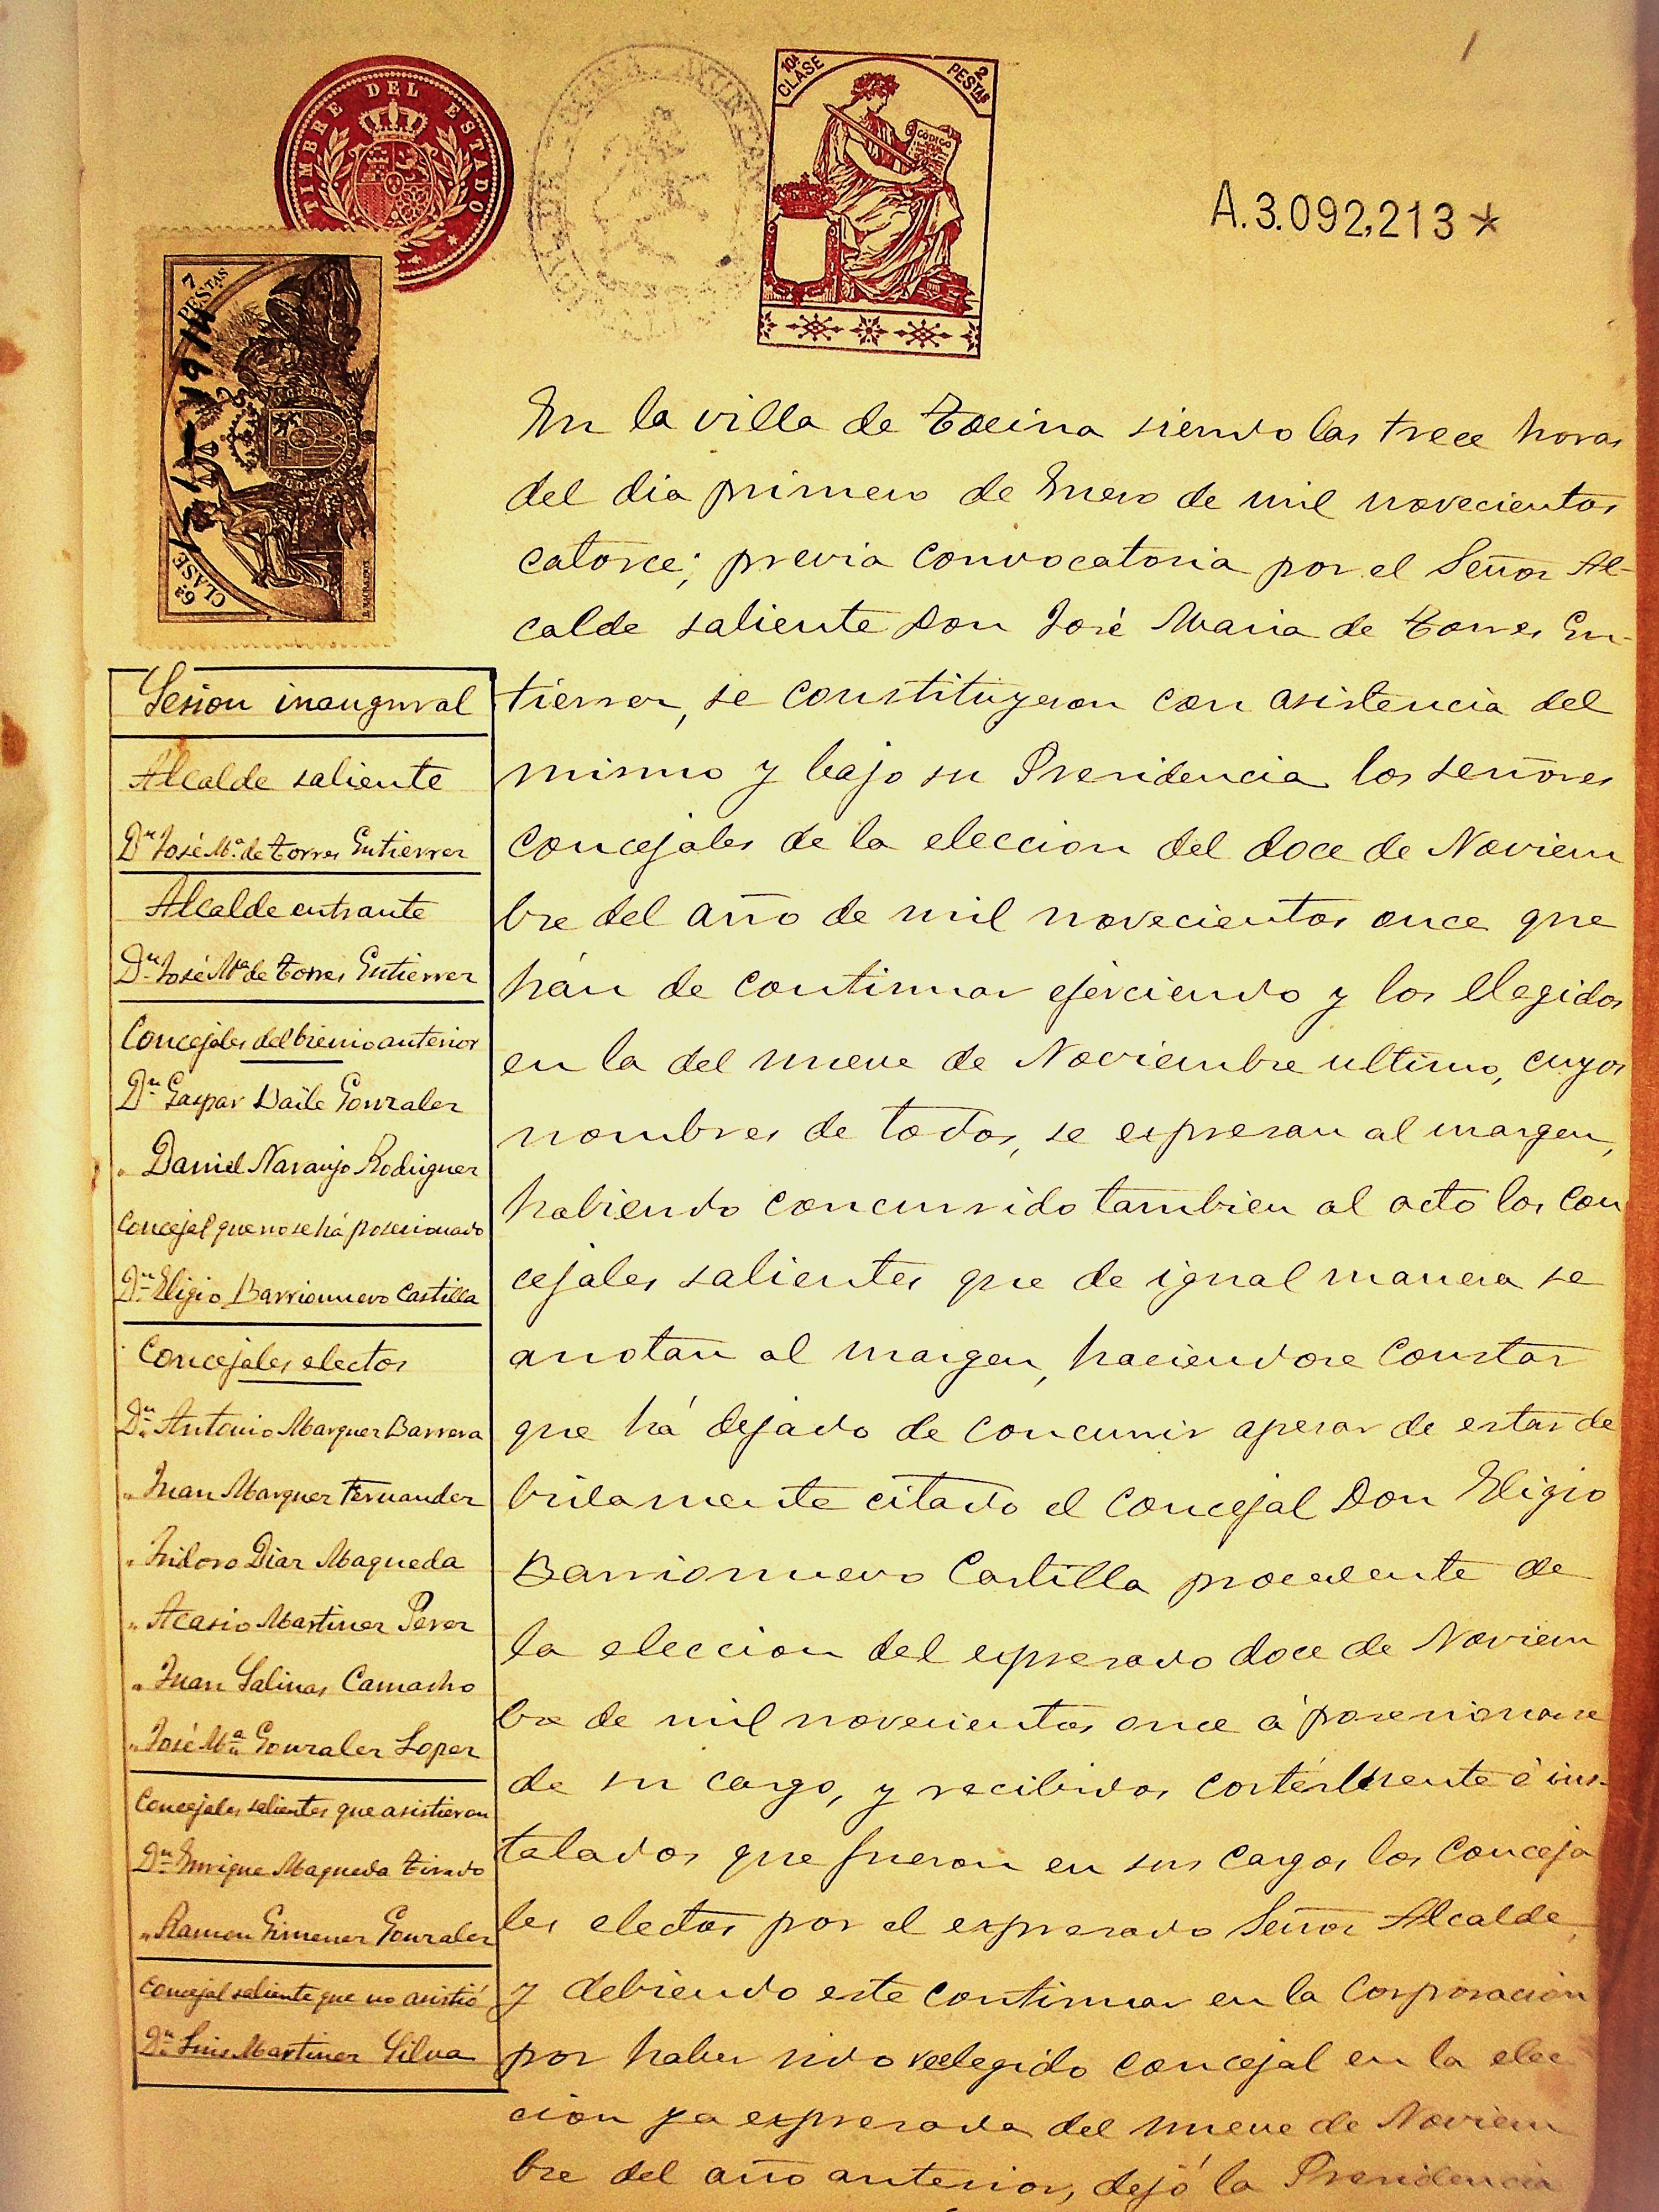 TIMBRE DEL ESTADO
10ª CLASE
2 PESTAS
CODIGO
A.3.092,213*
7 PESTAS
1-1-1914
6ª CLASE
En la villa de Tocina siendo las trece horas
del dia primero de Enero de mil novecientos
catorce; previa convocatoria por el Señor Al-
calde saliente Don José Maria de Torres Gu-
tierrez, se constituyeron con asistencia del
mismo y bajo su Presidencia los señores
concejales de la eleccion del doce de Noviem
bre del año de mil novecientos once que
hán de continuar ejerciendo y los elegidos
en la del nueve de Noviembre ultimo, cuyos
nombres de todos, se expresan al margen,
habiendo concurrido tambien al acto los con
cejales salientes que de igual manera se
anotan al margen, haciendose constar
que há dejado de concurrir apesar de estar de
bidamente citado el concejal Don Eligio
Barrionuevo Castilla procedente de
la eleccion del expresado doce de Noviem
bre de mil novecientos once á posesionarse
de su cargo, y recibidos cortésmente é ins-
talados que fueron en sus cargos los conceja
les electos por el expresado Señor Alcalde,
y debiendo este continuar en la Corporacion
por haber sido reelegido concejal en la elec
cion ya expresada del nueve de Noviem
bre del año anterior, dejó la Presidencia
Sesion inaugural
Alcalde saliente
Dn José Mª. de Torres Gutierrez
Alcalde entrante
Dn José Mª de Torres Gutierrez
Concejales del bienio anterior
Dn Gaspar Daile Gonzalez
" Daniel Naranjo Rodriguez
Concejal que no se há posesionado
Dn Eligio Barrionuevo Castilla
Concejales electos
Dn Antonio Marquez Barrera
" Juan Marquez Fernandez
" Isidoro Diaz Maqueda
" Acasio Martinez Perez
" Juan Salinas Camacho
" José Mª Gonzalez Lopez
Concejales salientes que asistieron
Dn Enrique Maqueda Tirado
" Ramon Gimenez Gonzalez
Concejal saliente que no asistió
Dn Luis Martinez Silva